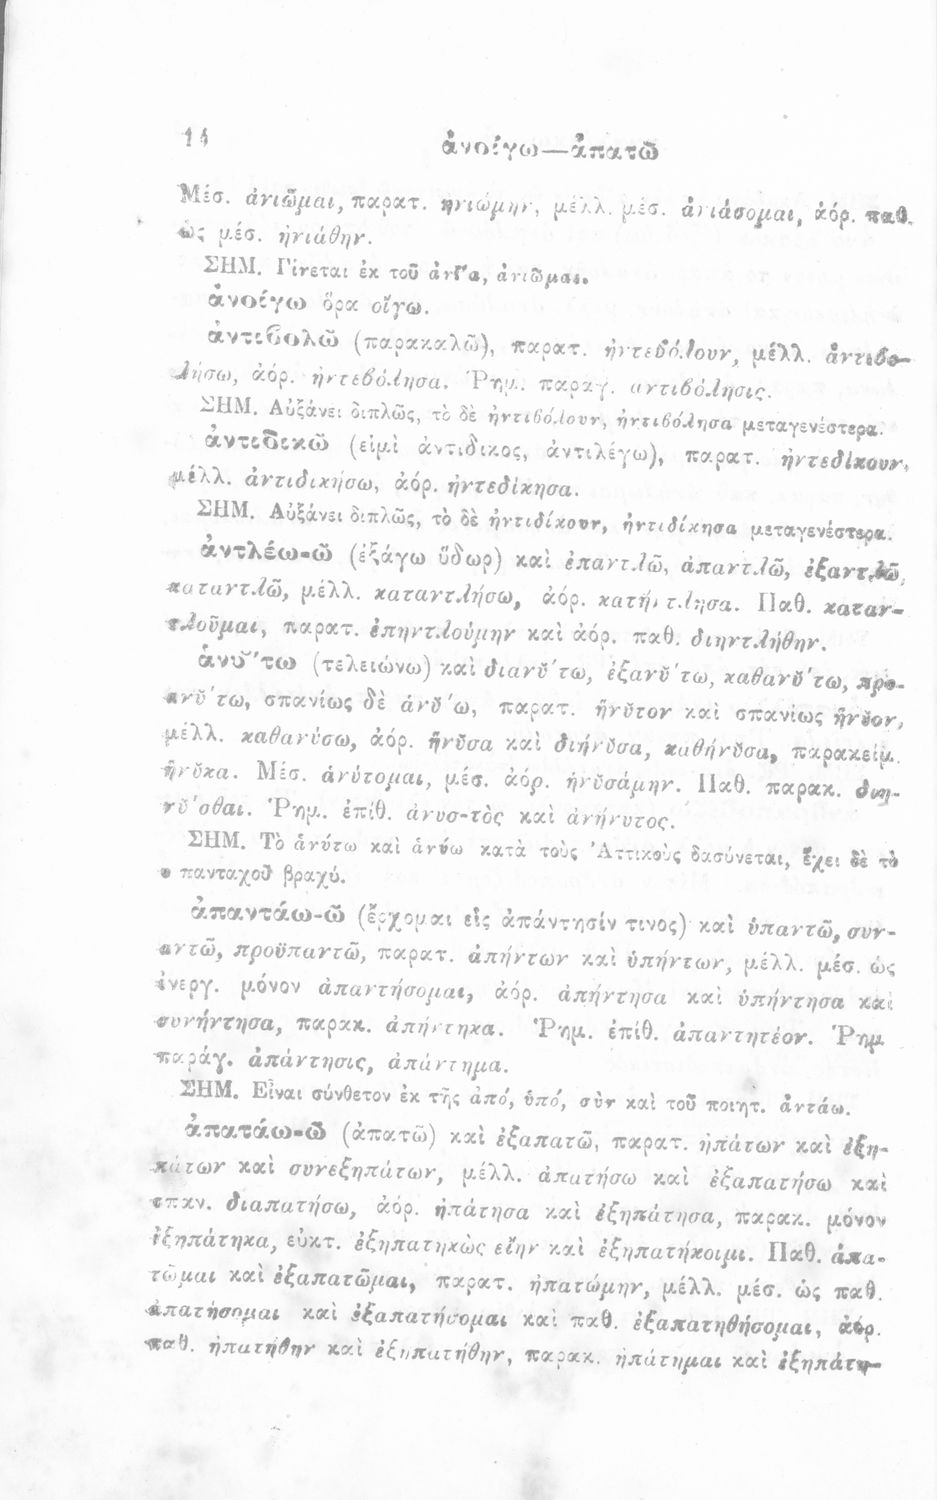 14
ἀνοίγω—ἀπατῶ
Μέσ. ἀνιῶμαι, παρατ. ἠνιώμην, μέλλ. μέσ. ἀνιάσομαι, ἀόρ. παθ.
ὡς μέσ. ἠνιάθην.
ΣΗΜ. Γίνεται ἐκ τοῦ ἀνία, ἀνιῶμαι.
ἀνοίγω ὅρα οἴγω.
ἀντιβολῶ (παρακαλῶ), παρατ. ἠντεβόλουν, μέλλ. ἀντιβο-
λήσω, ἀόρ. ἠντεβόλησα. Ῥημ. παράγ. ἀντιβόλησις.
ΣΗΜ. Αὐξάνει διπλῶς, τὸ δὲ ἠντιβόλουν, ἠντιβόλησα μεταγενέστερα.
ἀντιδικῶ (εἰμὶ ἀντίδικος, ἀντιλέγω), παρατ. ἠντεδίκουν,
μέλλ. ἀντιδικήσω, ἀόρ. ἠντεδίκησα.
ΣΗΜ. Αὐξάνει διπλῶς, τὸ δὲ ἠντιδίκουν, ἠντιδίκησα μεταγενέστερα.
ἀντλέω-ῶ (ἐξάγω ὕδωρ) καὶ ἐπαντλῶ, ἀπαντλῶ, ἐξαντλῶ,
καταντλῶ, μέλλ. καταντλήσω, ἀόρ. κατήντλησα. Παθ. καταν-
τλοῦμαι, παρατ. ἐπηντλούμην καὶ ἀόρ. παθ. διηντλήθην.
ἁνῠ́τω (τελειώνω) καὶ διανῠ́τω, ἐξανῠ́τω, καθανῠ́τω, προ-
ανῠ́τω, σπανίως δὲ ἁνῠ́ω, παρατ. ἥνῠτον καὶ σπανίως ἥνῠον,
μέλλ. καθανύσω, ἀόρ. ἥνῠσα καὶ διήνῠσα, καθήνῠσα, παρακείμ.
ἥνῠκα. Μέσ. ἁνύτομαι, μέσ. ἀόρ. ἡνῠσάμην. Παθ. παρακ. διη-
νῠ́σθαι. Ῥημ. ἐπίθ. ἀνυσ-τὸς καὶ ἀνήνυτος.
ΣΗΜ. Τὸ ἁνύτω καὶ ἁνύω κατὰ τοὺς Ἀττικοὺς δασύνεται, ἔχει δὲ τὸ
υ πανταχοῦ βραχύ.
ἀπαντάω-ῶ (ἔρχομαι εἰς ἀπάντησίν τινος) καὶ ὑπαντῶ, συν-
αντῶ, προϋπαντῶ, παρατ. ἀπήντων καὶ ὑπήντων, μέλλ. μέσ. ὡς
ἐνεργ. μόνον ἀπαντήσομαι, ἀόρ. ἀπήντησα καὶ ὑπήντησα καὶ
συνήντησα, παρακ. ἀπήντηκα. Ῥημ. ἐπίθ. ἀπαντητέον. Ῥημ
παράγ. ἀπάντησις, ἀπάντημα.
ΣΗΜ. Εἶναι σύνθετον ἐκ τῆς ἀπό, ὑπό, σὺν καὶ τοῦ ποιητ. ἀντάω.
ἀπατάω-ῶ (ἀπατῶ) καὶ ἐξαπατῶ, παρατ. ἠπάτων καὶ ἐξη-
πάτων καὶ συνεξηπάτων, μέλλ. ἀπατήσω καὶ ἐξαπατήσω καὶ
σπαν. διαπατήσω, ἀόρ. ἠπάτησα καὶ ἐξηπάτησα, παρακ. μόνον
ἐξηπάτηκα, εὐκτ. ἐξηπατηκὼς εἴην καὶ ἐξηπατήκοιμι. Παθ. ἀπα-
τῶμαι καὶ ἐξαπατῶμαι, παρατ. ἠπατώμην, μέλλ. μέσ. ὡς παθ.
ἀπατήσομαι καὶ ἐξαπατήσομαι καὶ παθ. ἐξαπατηθήσομαι, ἀόρ.
παθ. ἠπατήθην καὶ ἐξηπατήθην, παρακ. ἠπάτημαι καὶ ἐξηπάτη-